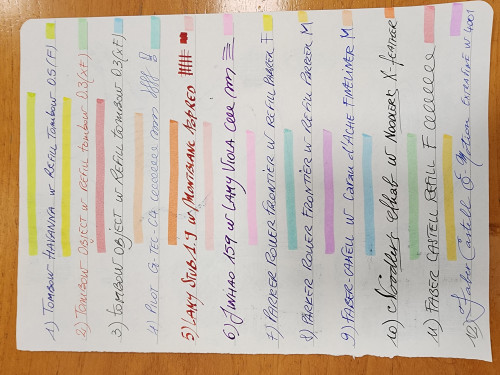 1) TOMBOW HAVANNA W REFILL TOMBOW 0.5 (F)
2) TOMBOW OBJECT W REFILL TOMBOW 0.3 (XF)
3) TOMBOW OBJECT W REFILL TOMBOW 0.3 (XF)
4) PILOT G-TEC-C4
5) LAMY STUB 1.1 W MONTBLANC RED
6) JINHAO 159 W LAMY VIOLA
7) PARKER ROLLER FRONTIER W REFILL PARKER F
8) PARKER ROLLER FRONTIER W REFILL PARKER M
9) FABER-CASTELL W CARAN D'ACHE FINELINER M
10) Noodlers W NOODLERS X-FEATHER
11) FABER CASTELL REFILL F
12) Faber Castell W 4001